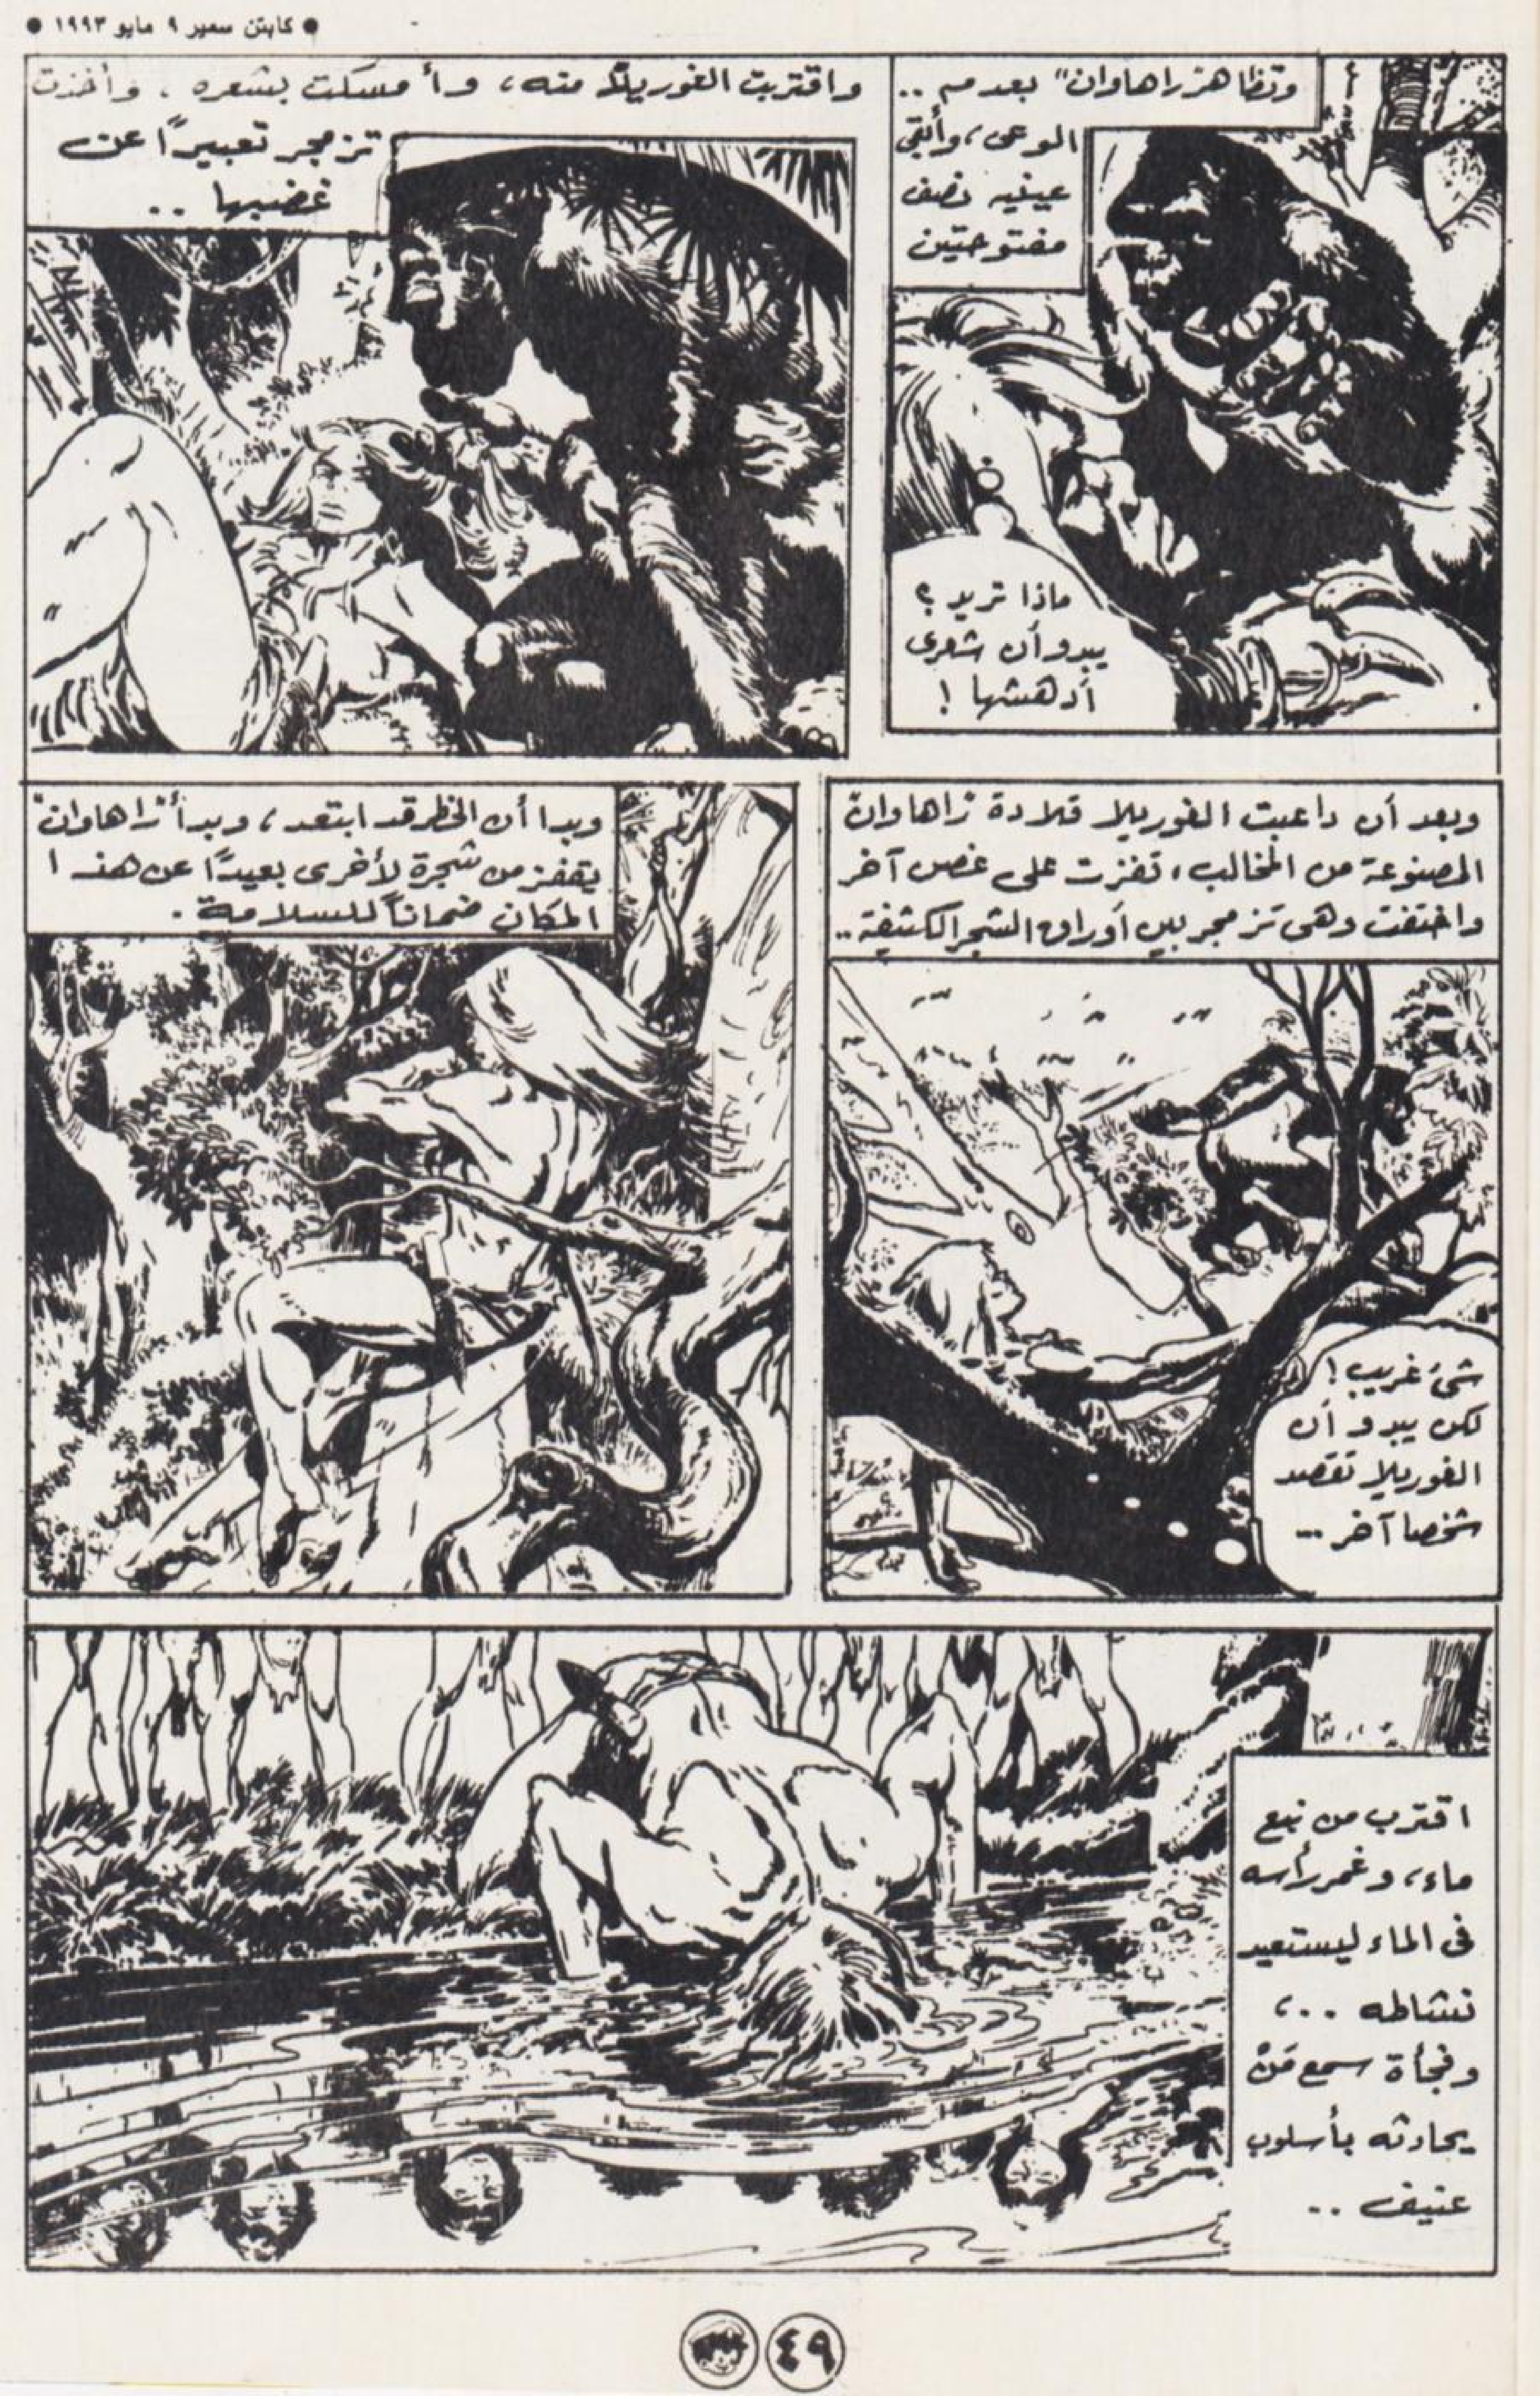 ● كابتن سمير ٩ مايو ١٩٩٣ ●
وتظاهر "راهاوان" بعدم ..
الوعى، وأبقى
عينيه نصف
مفتوحتين
ماذا تريد ؟
يبدو أن شعرى
أدهشها !
واقتربت الغوريلا منه، وأمسكت بشعره . وأخذت
تزمجر تعبيرًا عن
غضبها ..
وبعد أن داعبت الغوريلا قلادة "راهاوان"
المصنوعة من المخالب، قفزت على غصن آخر
واختفت وهى تزمجر بين أوراق الشجر الكثيفة ..
شىء غريب !
لكن يبدو أن
الغوريلا تقصد
شخصا آخر ...
وبدا أن الخطر قد ابتعد، وبدأ "راهاوان"
يقفز من شجرة لأخرى بعيدًا عن هذا
المكان ضمانًا للسلامة .
اقترب من نبع
ماء، وغمر رأسه
فى الماء ليستعيد
نشاطه ..،
وفجأة سمع مَنْ
يحادثه بأسلوب
عنيف ..
٤٩